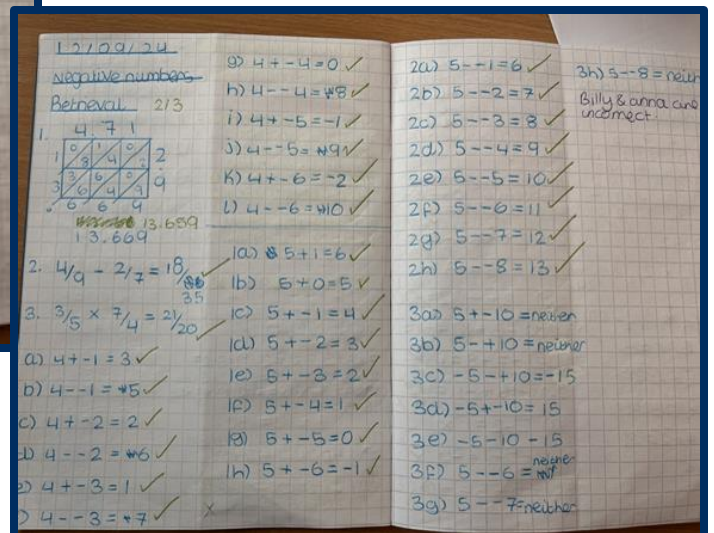 12/09/24
Negative numbers
Retrieval 2/3
1. 4.71
0 1 0
1 8 4 2 2
3 6 0
3 6 4 9 9
6 6 9
13.659
13.669
2. 4/9 - 2/7 = 18/
35
3. 3/5 × 7/4 = 21/20
a) 4+-1=3
b) 4--1=5
c) 4+-2=2
d) 4--2=6
e) 4+-3=1
) 4--3=7
g) 4+-4=0
h) 4--4=8
i) 4+-5=-1
j) 4--5=9
k) 4+-6=-2
l) 4--6=10
1a) 5+1=6
1b) 5+0=5
1c) 5+-1=4
1d) 5+-2=3
1e) 5+-3=2
1f) 5+-4=1
1g) 5+-5=0
1h) 5+-6=-1
2a) 5--1=6
2b) 5--2=7
2c) 5--3=8
2d) 5--4=9
2e) 5--5=10
2f) 5--6=11
2g) 5--7=12
2h) 5--8=13
3a) 5+-10=neither
3b) 5-+10=neither
3c) -5-+10=-15
3d) -5+-10=15
3e) -5-10-15
3f) 5--6=neither
3g) 5--7=neither
3h) 5--8=neith
Billy & anna are
incorrect